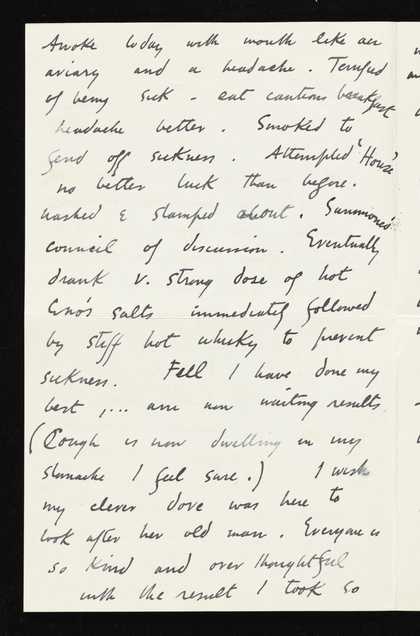 Awoke today with mouth like an
aviary and a headache. Terrified
of being sick - eat cautious breakfast
headache better. Smoked to
fend off sickness. Attempted 'House'
no better luck than before.
washed & stamped about. Summoned
council of discussion. Eventually
drank v. strong dose of hot
Eno's salts immediately followed
by stiff hot whisky to prevent
sickness. Fell I have done my
best, ... am now waiting results.
(Cough is now dwelling in my
stomache I feel sure.) I wish
my clever dove was here to
look after her old man. Everyone is
so kind and over thoughtful
with the result I took so